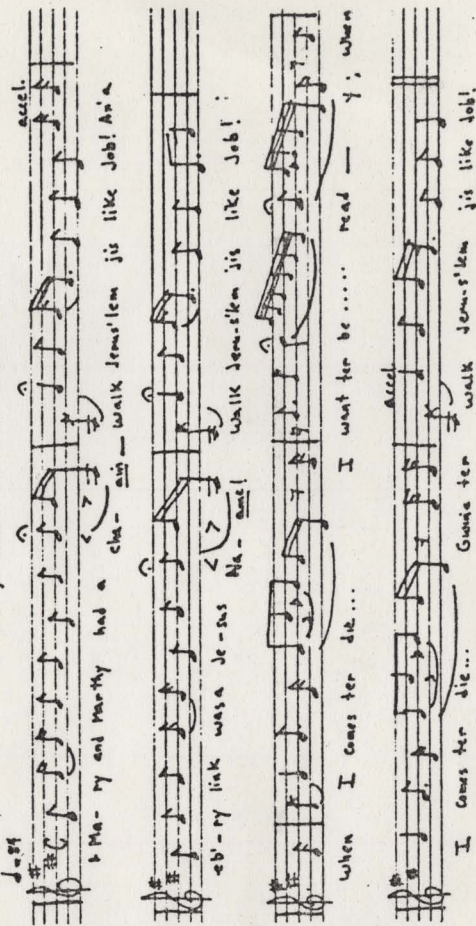 ♩=84
accel.
Ma-ry and Marthy had a cha-ain — walk Jerus'lem jis like Job! An' a
eb'-ry link was a Je-sus Na-ame! walk Jeru-s'lem jis like Job!
when I comes ter die... I want ter be..... read — y; when
accel.
I comes ter die... Gwine ter walk Jeru-s'lem jis like Job!